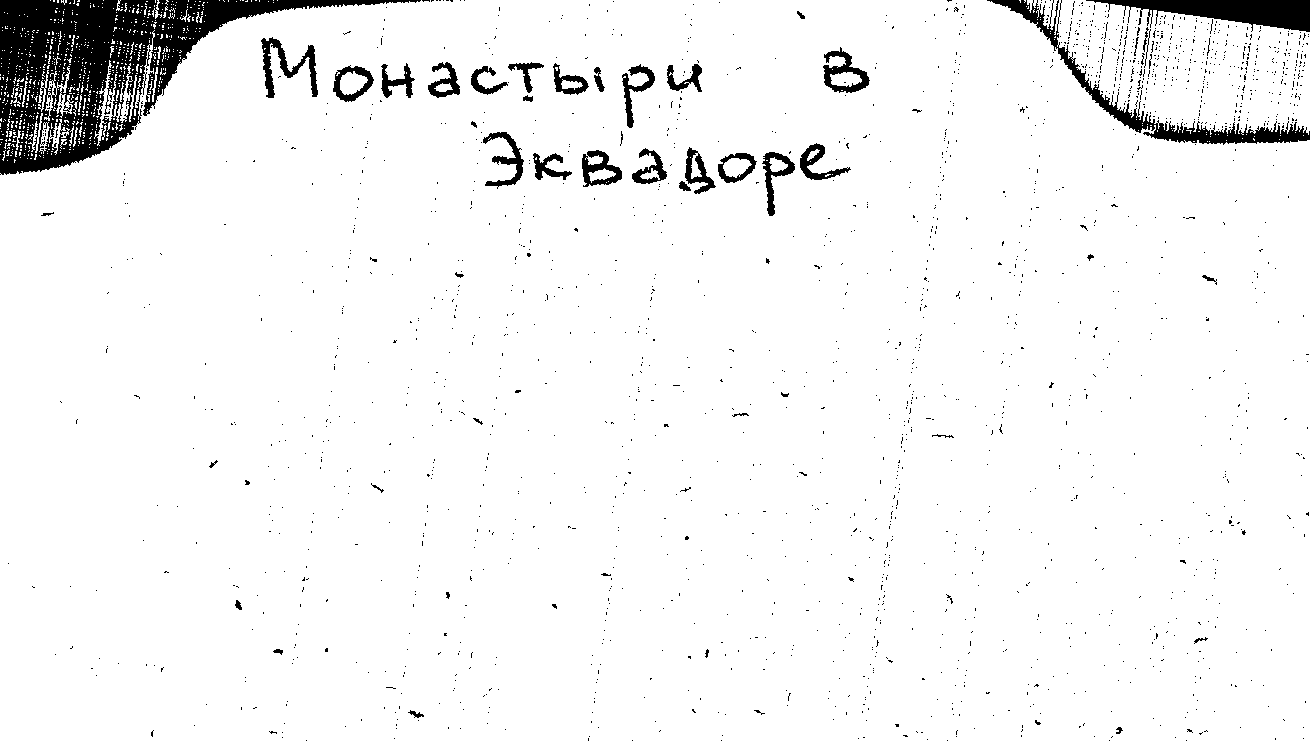 Монастыри в
Эквадоре